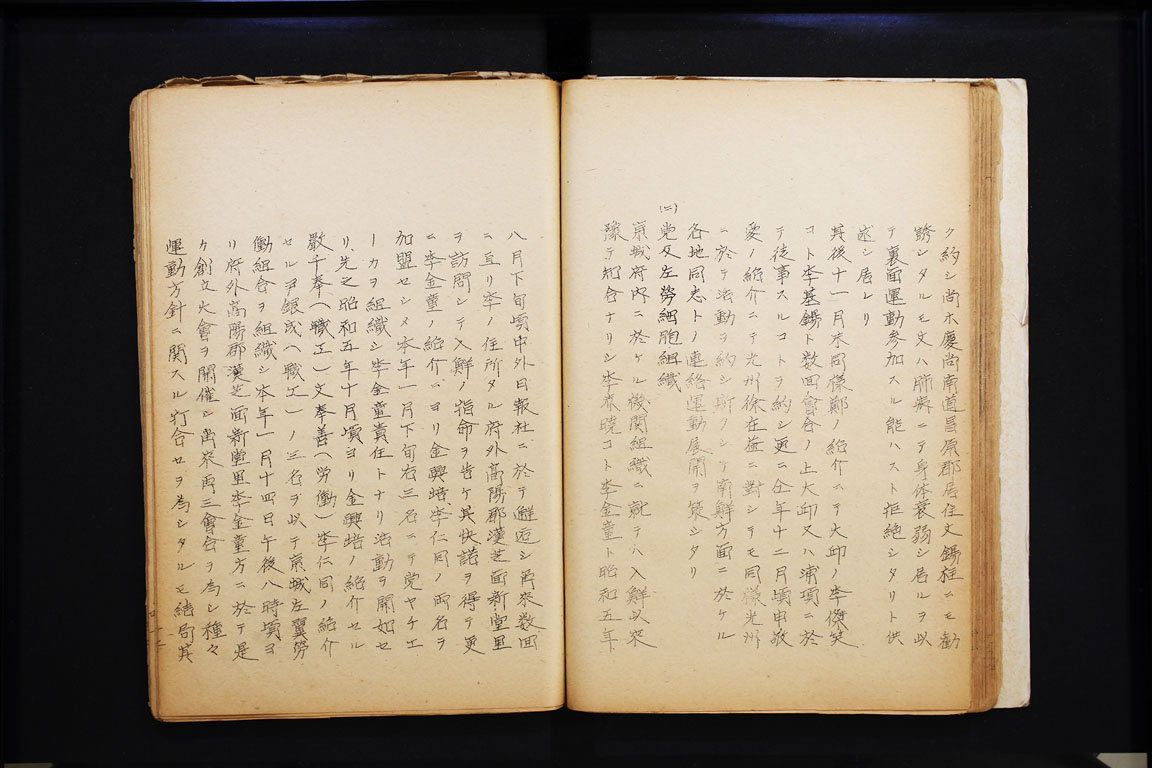 ク約シ尚ホ慶尚南道昌原郡居住文錫柱ニモ勧
誘シタルモ文ハ肺病ニテ身体衰弱シ居ルヲ以
テ裏面運動参加スル能ハスト拒絶シタリト供
述シ居レリ
其後十一月末同様鄭ノ紹介ニテ大邱ノ李
コト李基錫ト数回會合ノ上大邱又ハ浦項ニ於
テ徒事スルコトヲ約シ更ニ仝年十二月頃申敬
愛ノ紹介ニテ光州徐在益ニ對シテモ同様光州
ニ於テ活動ヲ約シ斯クシテ南鮮方面ニ於ケル
各地同志トノ連絡運動展開ヲ策シタリ
(二)党及左労細胞組織
京城府内ニ於ケル機関組織ニ就テハ入鮮以来
豫テ知合ナリシ李春曉コト李金童ト昭和五年
八月下旬頃中外日報社ニ於テ邂逅シ爾来数回
ニ亘リ李ノ住所タル府外高陽郡漢芝面新堂里
ヲ訪問シテ入鮮ノ指命ヲ告ケ其快諾ヲ得テ更
ニ李金童ノ紹介ニヨリ金興培李仁同ノ両名ヲ
加盟セシメ本年一月下旬右三名ニテ党ヤチエ
ーカヲ組織シ李金童責任トナリ活動ヲ開始セ
リ、先之昭和五年十月頃ヨリ金興培ノ紹介セル
嚴千奉(職工)文奉善(労働)李仁同ノ紹介
セル尹銀成(職工)ノ三名ヲ以テ京城左翼労
働組合ヲ組織シ本年一月十四日午後八時頃ヨ
リ府外高陽郡漢芝面新堂里李金童方ニ於テ是
カ創立大會ヲ開催シ爾来再三會合ヲ為シ種々
運動方針ニ関スル打合セヲ為シタルモ結局其